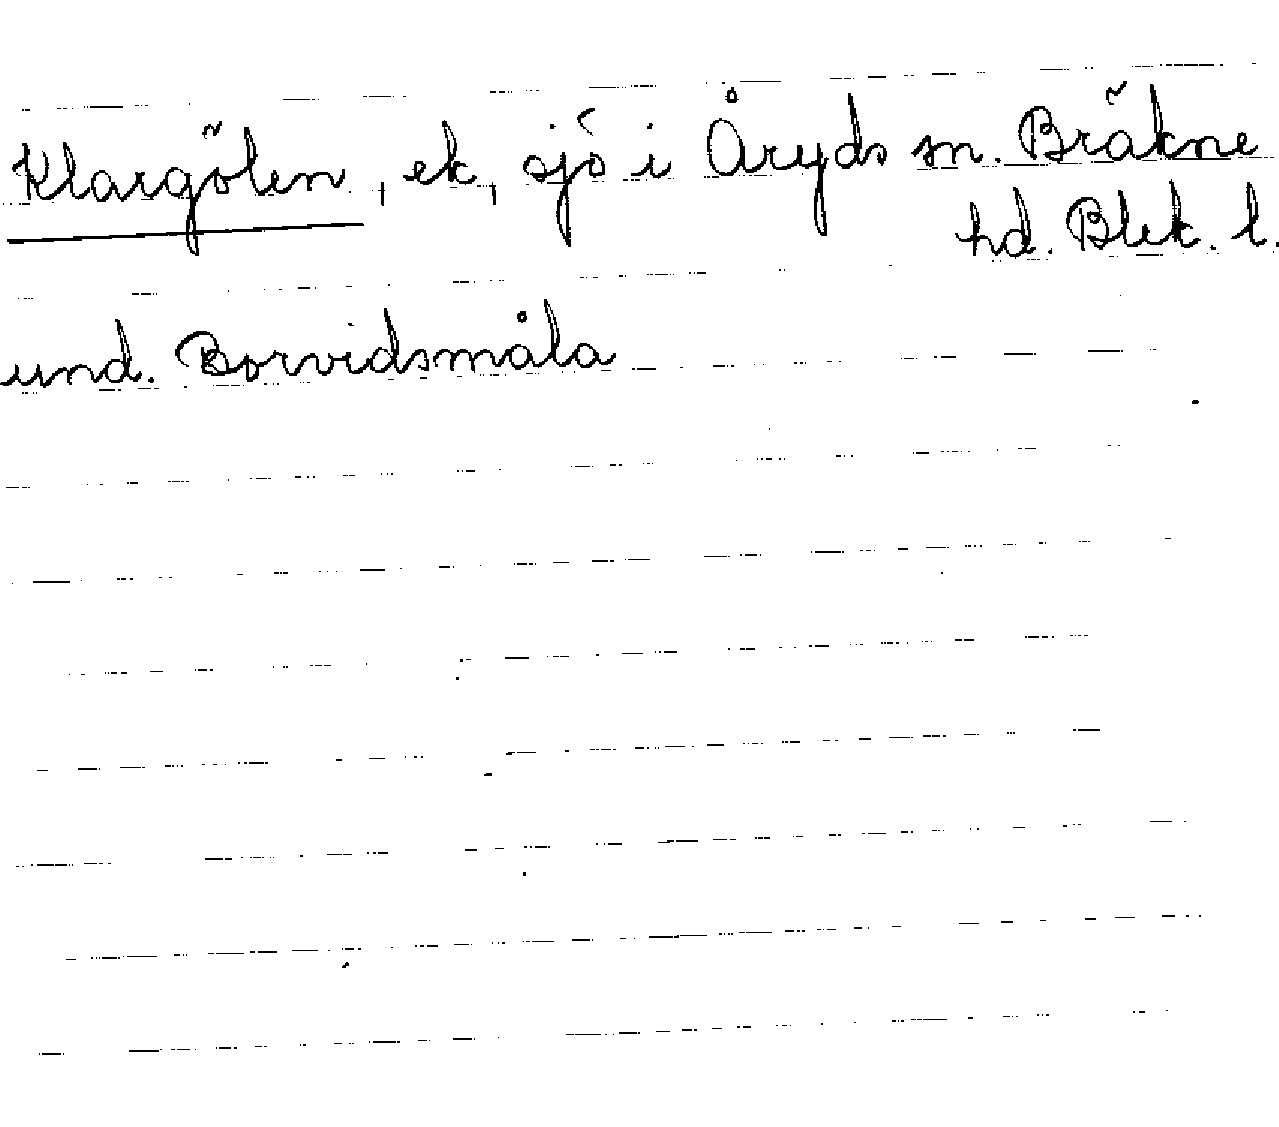 Klargölen, ek, sjö i Åryds sn. Bräkne
hd. Blek. l.
und. Borvidsmåla